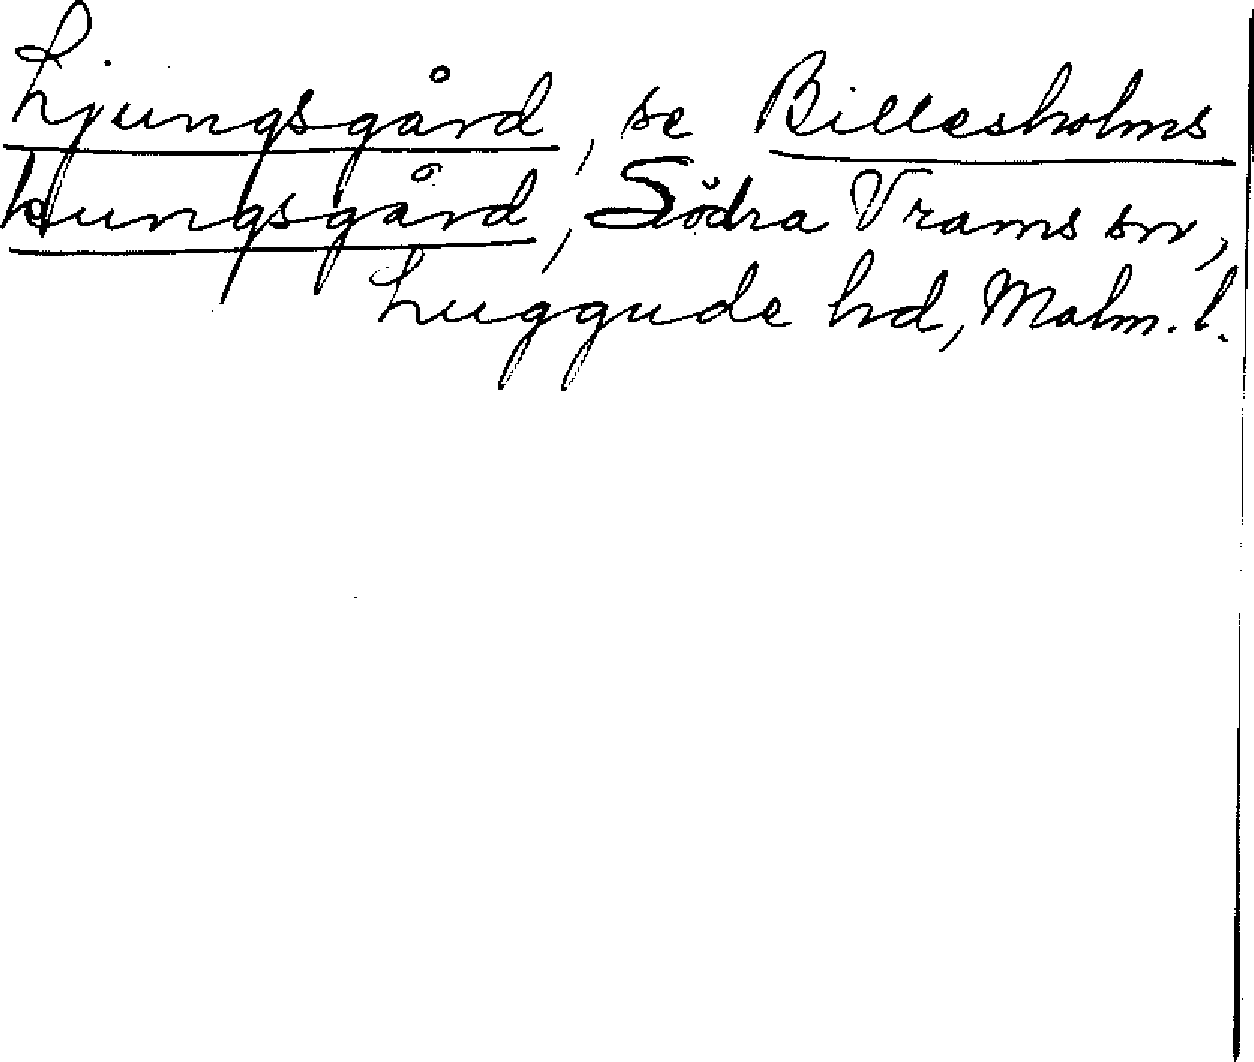 Ljungsgård, se Billesholms
kungsgård, Södra Vrams sn,
Luggude hd, Malm. l.